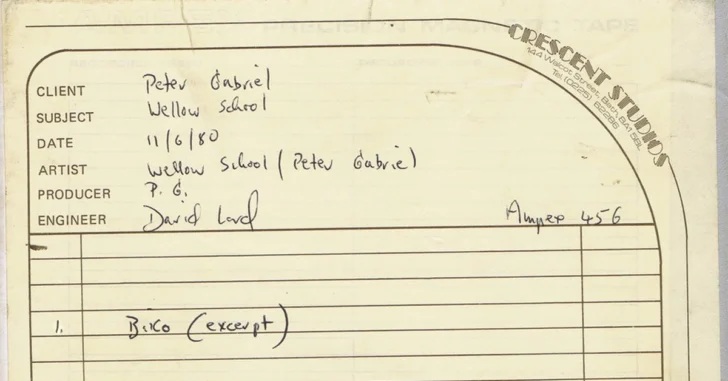 CRESCENT STUDIOS
144 Walcot Street, Bath, BA1 5BL
Tel. (0225)
CLIENT Peter Gabriel
SUBJECT Wellow School
DATE 11/6/80
ARTIST Wellow School (Peter Gabriel)
PRODUCER P. G.
ENGINEER David Lord Ampex 456
1. Biko (excerpt)